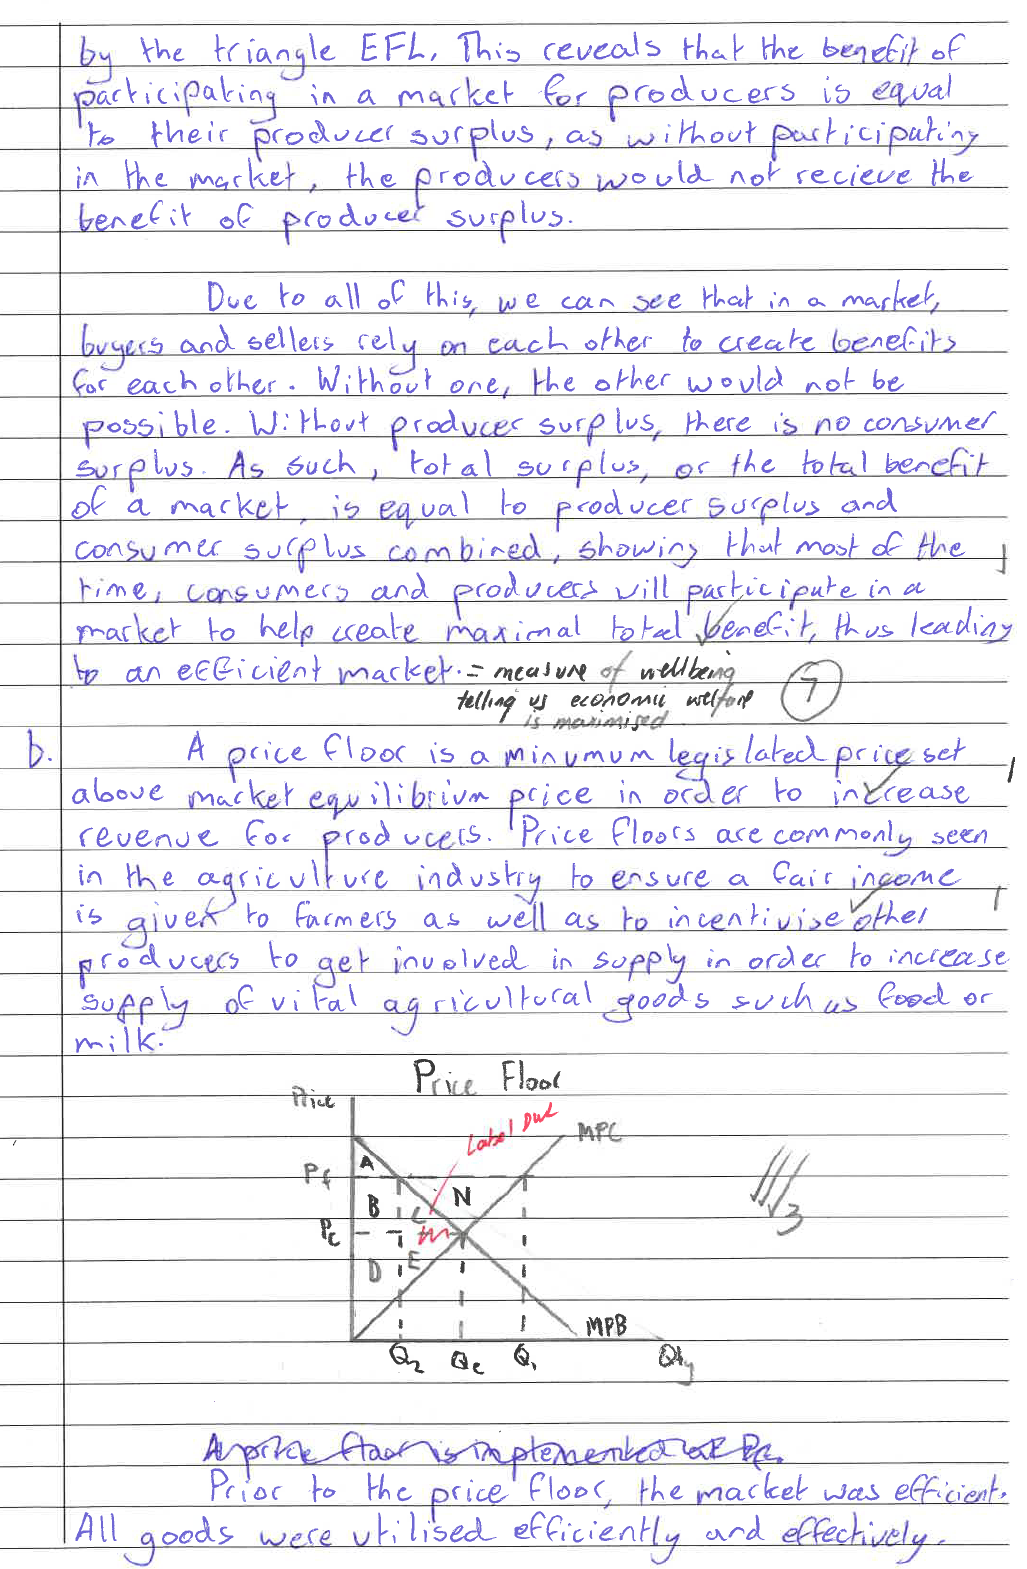 by the triangle EFL. This reveals that the benefit of
participating in a market for producers is equal
to their producer surplus, as without participating
in the market, the producers would not recieve the
benefit of producer surplus.
Due to all of this, we can see that in a market,
buyers and sellers rely on each other to create benefits
for each other. Without one, the other would not be
possible. Without producer surplus, there is no consumer
surplus. As such, total surplus, or the total benefit
of a market, is equal to producer surplus and
consumer surplus combined, showing that most of the
time, consumers and producers will participate in a
market to help create maximal total benefit, thus leading
to an efficient market. = measure of wellbeing
telling us economic welfare
is maximised
7
b. A price floor is a minumum legislated price set
above market equilibrium price in order to increase
revenue for producers. Price floors are commonly seen
in the agriculture industry to ensure a fair income
is given to farmers as well as to incentivise other
producers to get involved in supply in order to increase
supply of vital agricultural goods such as food or
milk.
Price Floor
Price
Label DWL
MPC
A
Pf
B
C
N
3
Pe
D
E
MPB
Q2 Qe Q1 Qty
A price floor is implemented at Pf.
Prior to the price floor, the market was efficient.
All goods were utilised efficiently and effectively.